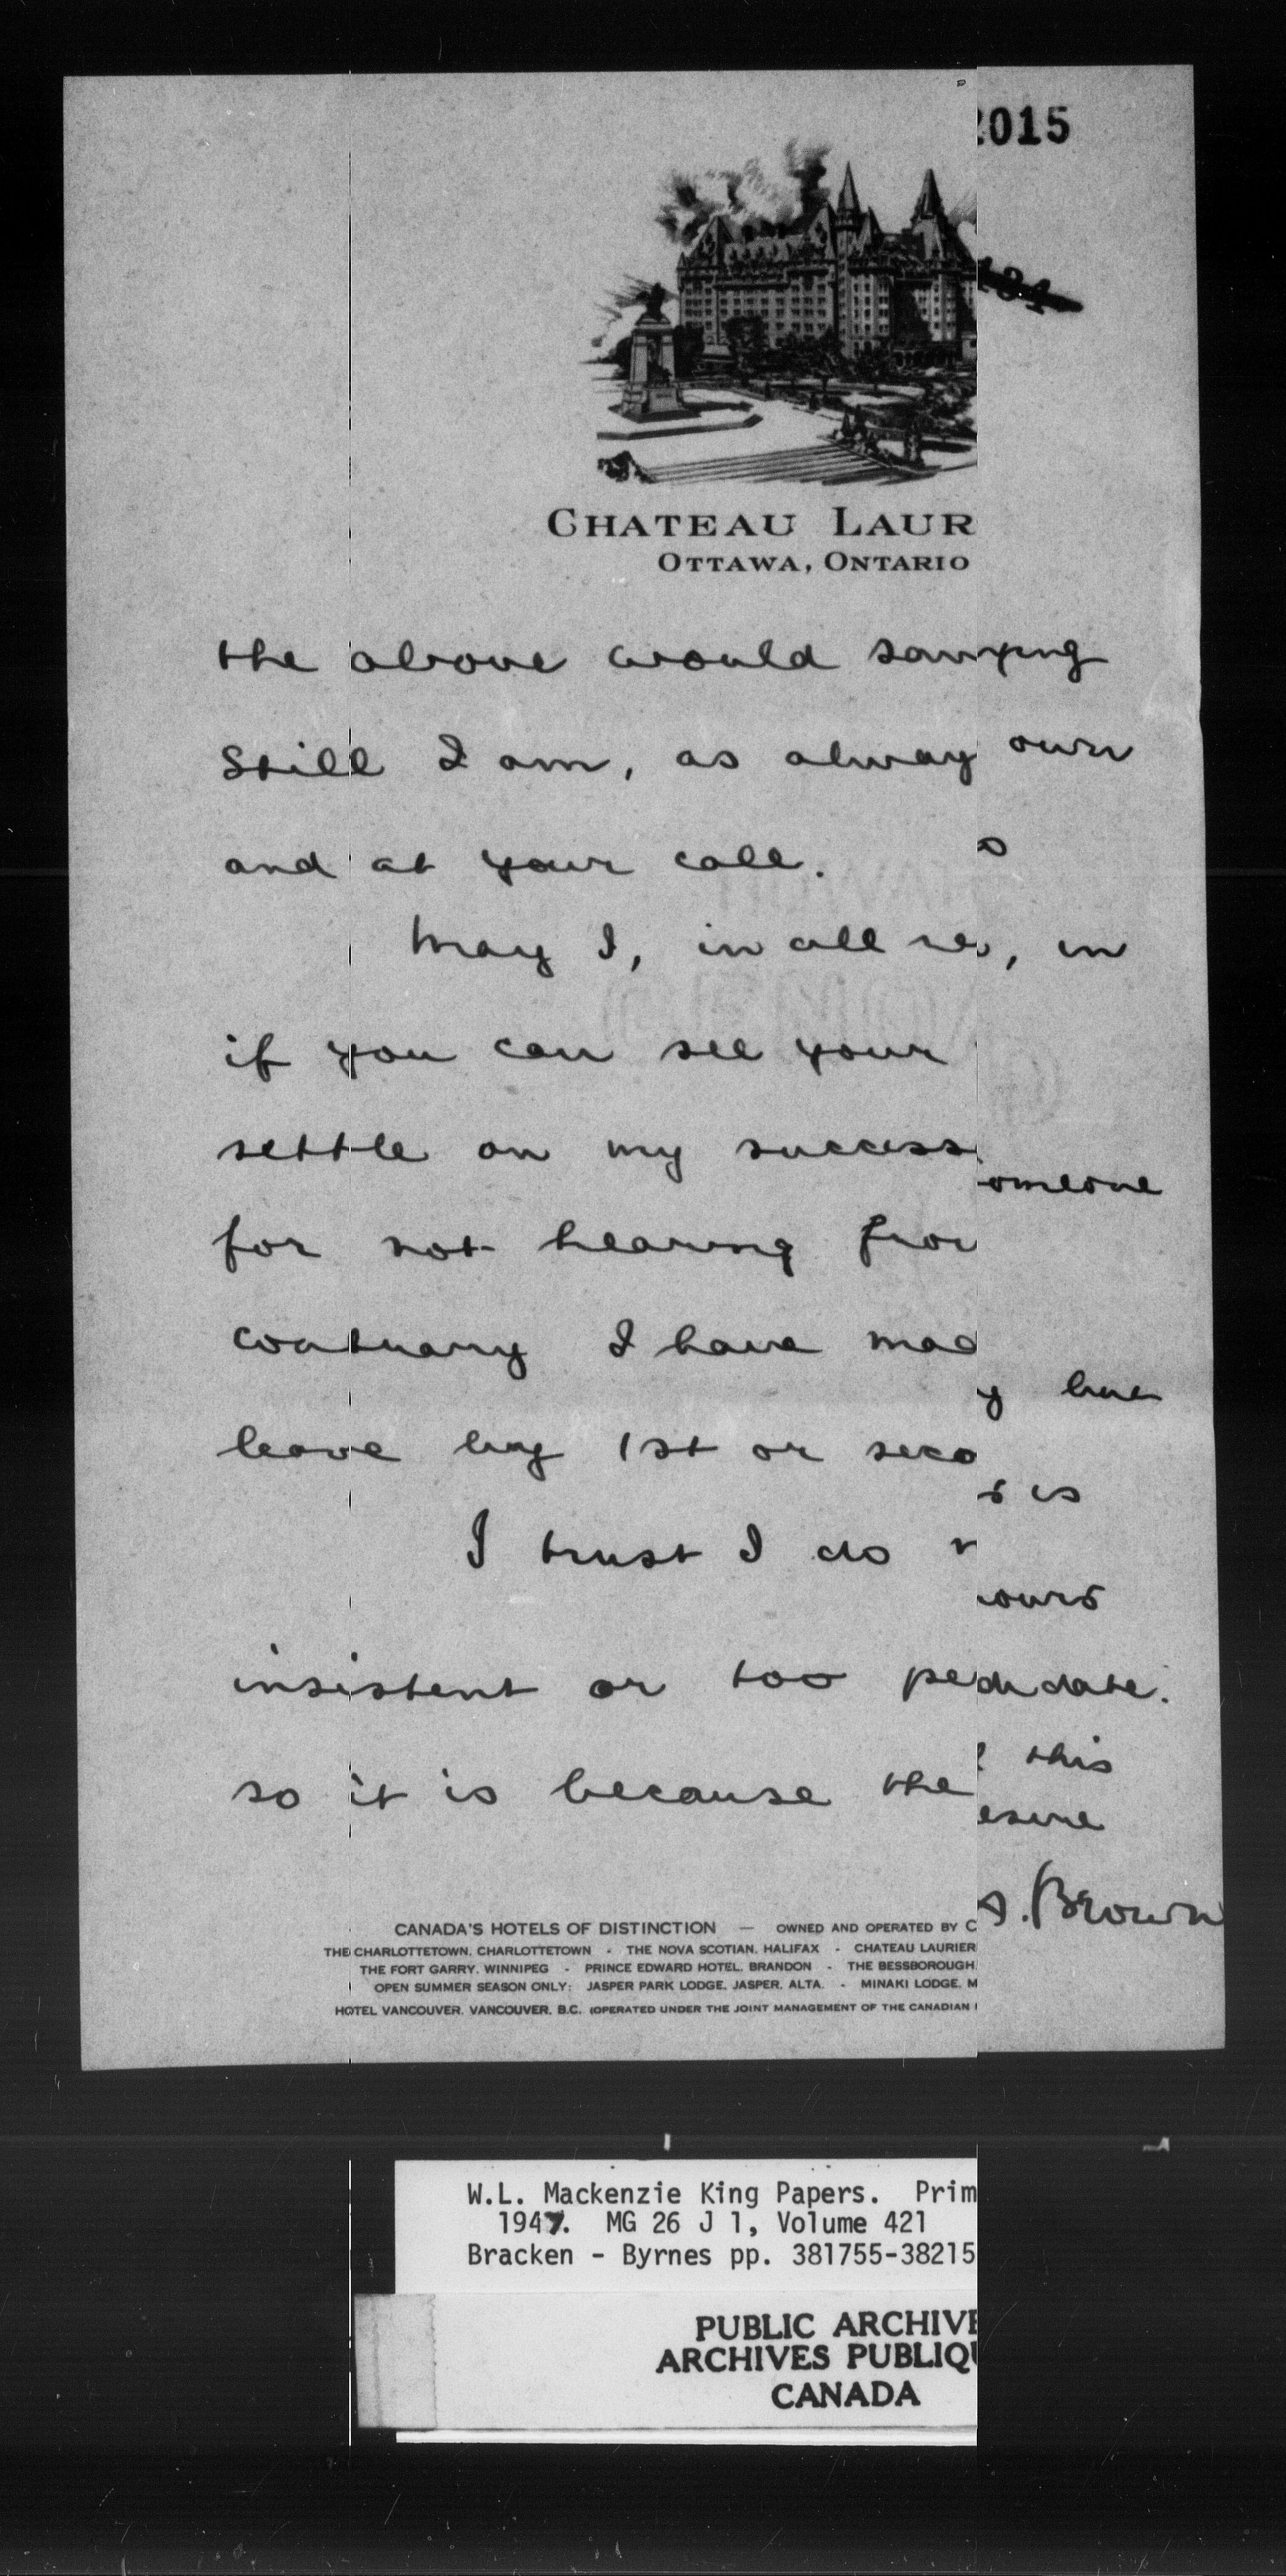 2015
CHATEAU LAUR
OTTAWA, ONTARIO
the above would
Still I am, as alway own
and at your call.
May I, in all , in
if you can see your
settle on my success
omeone
for not hearing
contrary I have mad
y have
leave by 1st or seco
s is
I trust I do
ours
insistent or too date.
so it is because the
this
esire
A. Brown
CANADA'S HOTELS OF DISTINCTION — OWNED AND OPERATED BY C
THE CHARLOTTETOWN, CHARLOTTETOWN - THE NOVA SCOTIAN, HALIFAX - CHATEAU LAURIER
THE FORT GARRY, WINNIPEG - PRINCE EDWARD HOTEL, BRANDON - THE BESSBOROUGH,
OPEN SUMMER SEASON ONLY: JASPER PARK LODGE, JASPER, ALTA. - MINAKI LODGE, M
HOTEL VANCOUVER, VANCOUVER, B.C. (OPERATED UNDER THE JOINT MANAGEMENT OF THE CANADIAN
W.L. Mackenzie King Papers. Prim
1947. MG 26 J 1, Volume 421
Bracken - Byrnes pp. 381755-38215
PUBLIC ARCHIVE
ARCHIVES PUBLIQU
CANADA